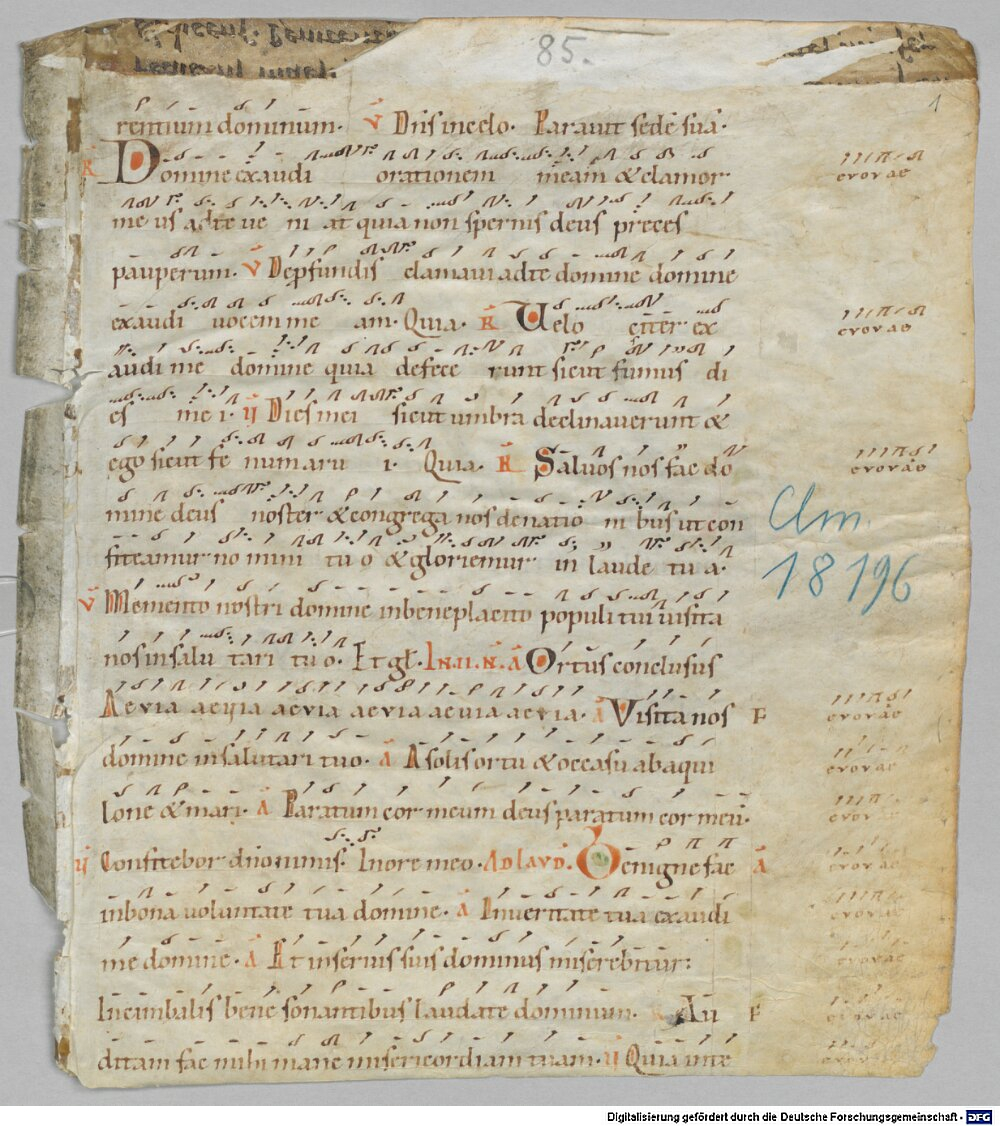 85.
1
rentium dominum. V Dn̄s incelo. Parauit sedē suā.
R Domine exaudi orationem meam & clamor
evovae
me us adte ue ni at quia non spernis deus preces
pauperum. V Dep̄fundis clamaui adte domine domine
exaudi uocem me am. Quia. R Uelo citer ex
evovae
audi me domine quia defece runt sicut fumus di
es me i. V Dies mei sicut umbra declinauerunt &
ego sicut fe num aru i. Quia. R Saluos nos fac do
evovae
mine deus noster & congrega nos denatio ni bus ut con
fiteamur no mini tu o & gloriemur in laude tu a.
Clm
18196
V Memento nostri domine inbeneplacito populi tui uisita
nos in salu tari tu o. Et gł. In.ii.N. A Ortus conclusus
Aevia aevia aevia aevia aeuia aevia. A Visita nos F
evovae
domine insalutari tuo. A A solis ortu & occasu ab aqui
evovae
lone & mari. A Paratum cor meum deus paratum cor meū.
evovae
V Confitebor dno nimis. In ore meo. Ad laud. Benigne fac A
evovae
inbona uoluntate tua domine. A Inueritate tua exaudi
evovae
me domine. A Et inseruis suis dominus miserebitur:
evovae
Incimbalis bene sonantibus laudate dominum. R Au F
ditam fac mihi mane misericordiam tuam. V Quia inte
evovae
Digitalisierung gefördert durch die Deutsche Forschungsgemeinschaft - DFG